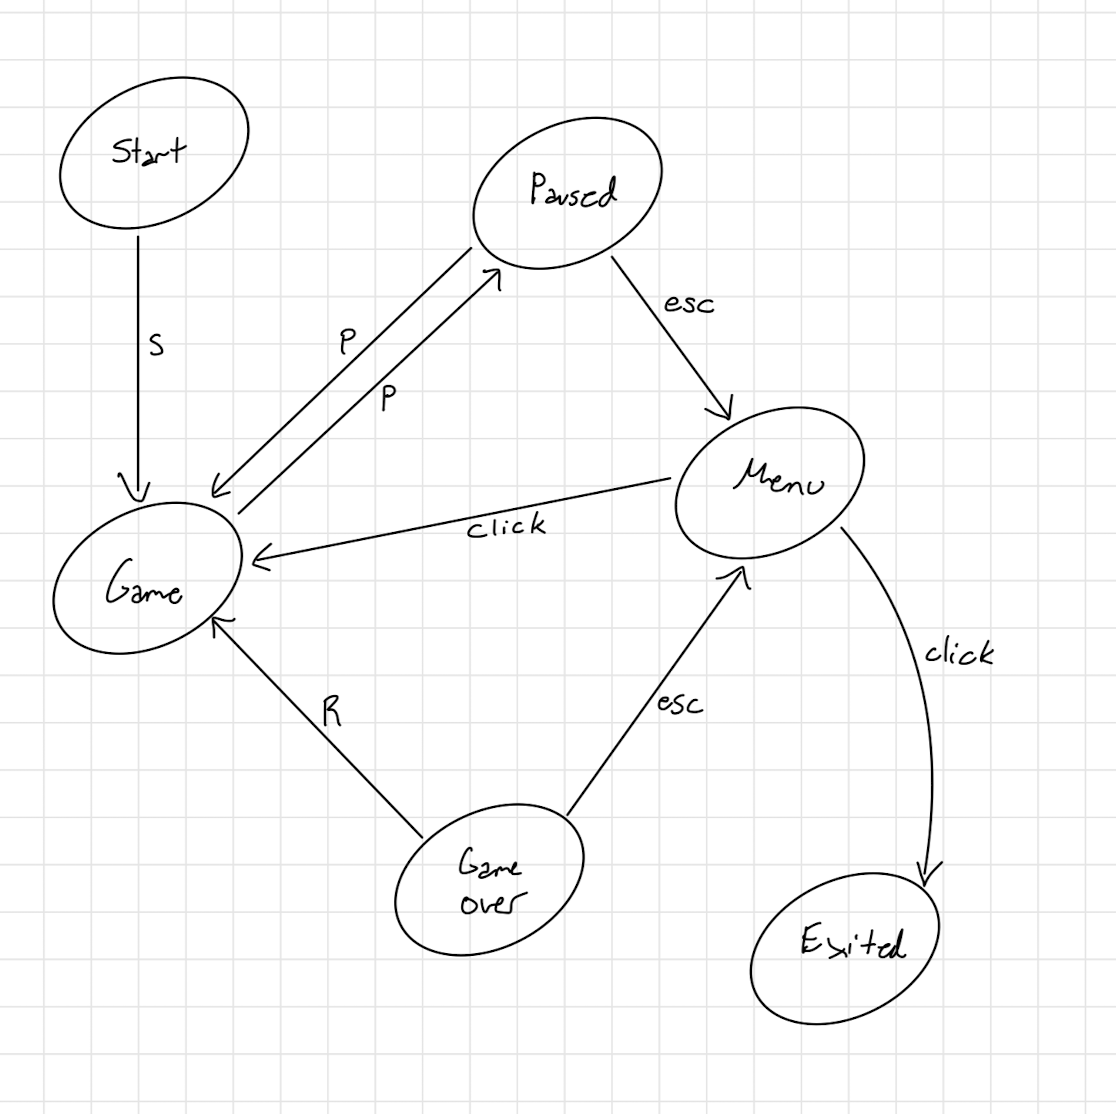 Start
Paused
esc
S
P
P
Menu
click
Game
click
R
esc
Game
over
Exited